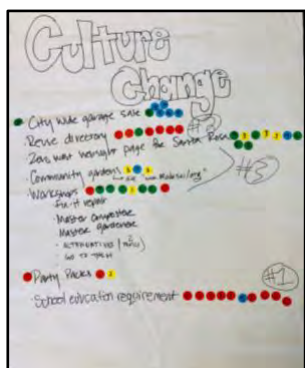 Culture
Change
· City wide garage sale
· Reuse directory #2
· Zero waste page for Santa Rosa
· Community gardens
· Workshops #3
· fix-it repair
· Master composter
Master gardener
· ALTERNATIVES
· GO TO THEM
Party Packs
#1
· School education requirement